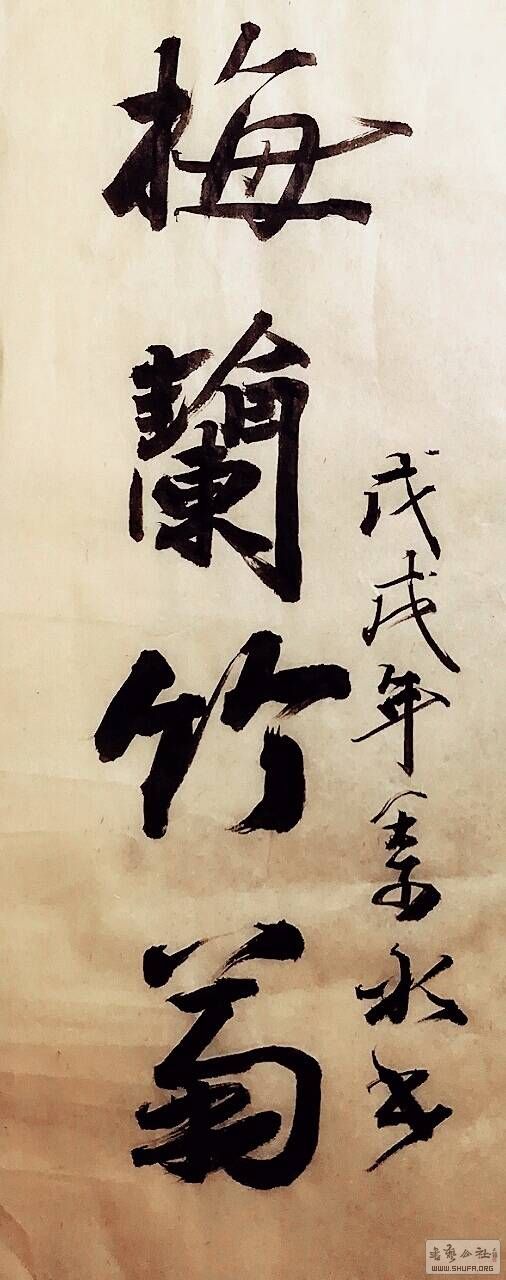 梅蘭竹菊
戊戌年水书
書藝公社
WWW.SHUFA.ORG